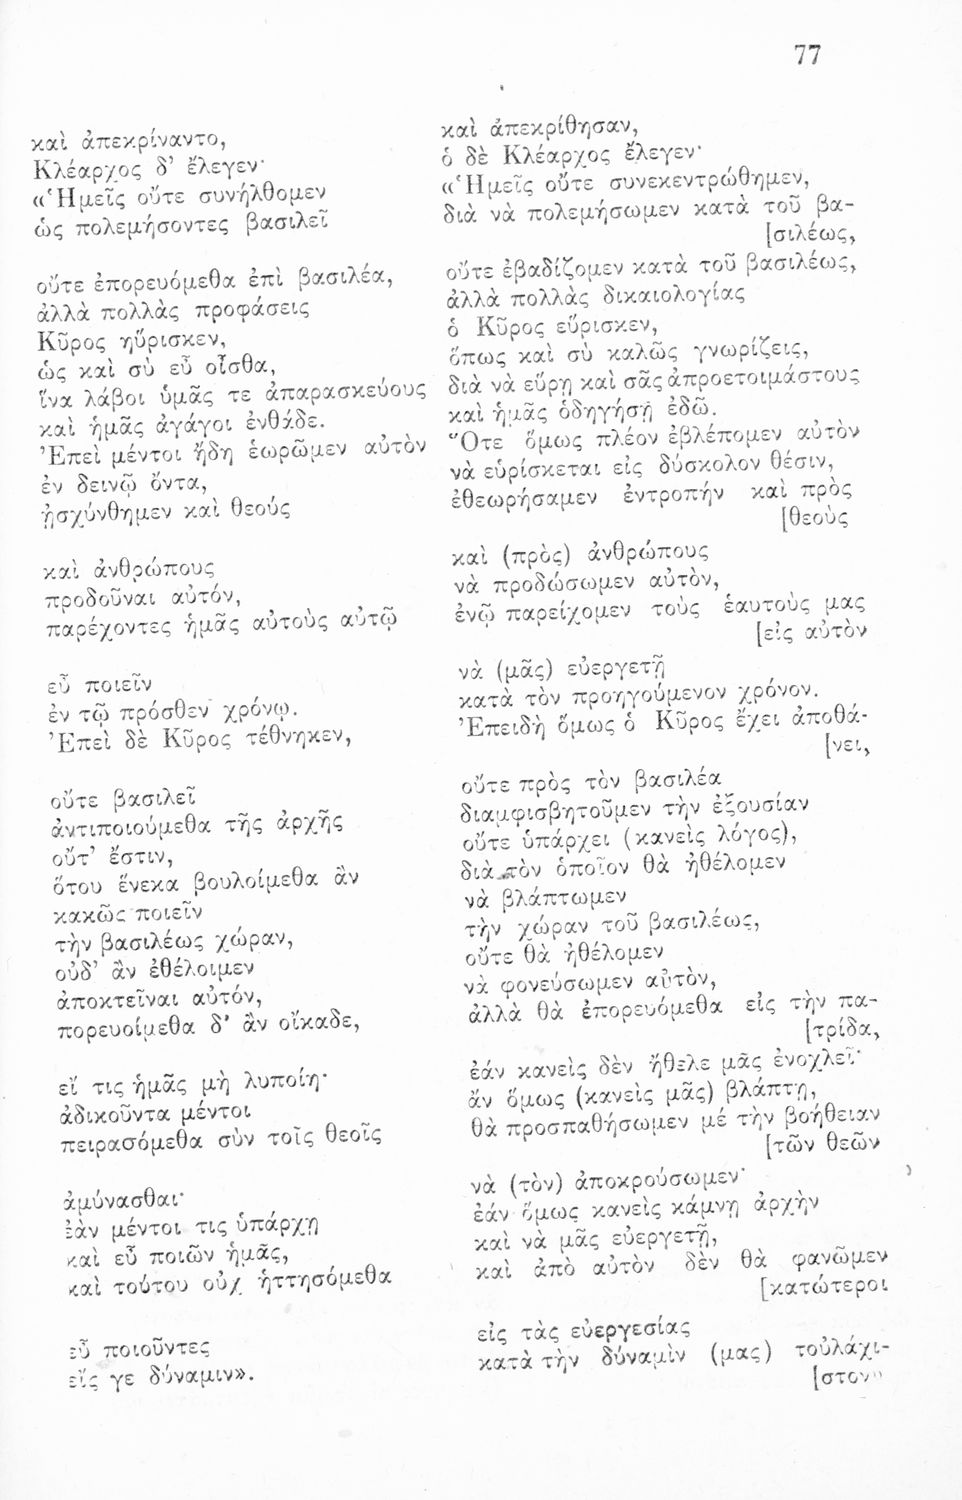 77
καὶ ἀπεκρίναντο,
Κλέαρχος δ’ ἔλεγεν·
«Ἡμεῖς οὔτε συνήλθομεν
ὡς πολεμήσοντες βασιλεῖ
οὔτε ἐπορευόμεθα ἐπὶ βασιλέα,
ἀλλὰ πολλὰς προφάσεις
Κῦρος ηὕρισκεν,
ὡς καὶ σὺ εὖ οἶσθα,
ἵνα λάβοι ὑμᾶς τε ἀπαρασκεύους
καὶ ἡμᾶς ἀγάγοι ἐνθάδε.
Ἐπεὶ μέντοι ἤδη ἑωρῶμεν αὐτὸν
ἐν δεινῷ ὄντα,
ᾐσχύνθημεν καὶ θεοὺς
καὶ ἀνθρώπους
προδοῦναι αὐτόν,
παρέχοντες ἡμᾶς αὐτοὺς αὐτῷ
εὖ ποιεῖν
ἐν τῷ πρόσθεν χρόνῳ.
Ἐπεὶ δὲ Κῦρος τέθνηκεν,
οὔτε βασιλεῖ
ἀντιποιούμεθα τῆς ἀρχῆς
οὔτ’ ἔστιν,
ὅτου ἕνεκα βουλοίμεθα ἂν
κακῶς ποιεῖν
τὴν βασιλέως χώραν,
οὐδ’ ἂν ἐθέλοιμεν
ἀποκτεῖναι αὐτόν,
πορευοίμεθα δ’ ἂν οἴκαδε,
εἴ τις ἡμᾶς μὴ λυποίη·
ἀδικοῦντα μέντοι
πειρασόμεθα σὺν τοῖς θεοῖς
ἀμύνασθαι·
ἐὰν μέντοι τις ὑπάρχῃ
καὶ εὖ ποιῶν ἡμᾶς,
καὶ τούτου οὐχ ἡττησόμεθα
εὖ ποιοῦντες
εἴς γε δύναμιν».
καὶ ἀπεκρίθησαν,
ὁ δὲ Κλέαρχος ἔλεγεν·
«Ἡμεῖς οὔτε συνεκεντρώθημεν,
διὰ νὰ πολεμήσωμεν κατὰ τοῦ βα-
[σιλέως,
οὔτε ἐβαδίζομεν κατὰ τοῦ βασιλέως,
ἀλλὰ πολλὰς δικαιολογίας
ὁ Κῦρος εὕρισκεν,
ὅπως καὶ σὺ καλῶς γνωρίζεις,
διὰ νὰ εὕρῃ καὶ σᾶς ἀπροετοιμάστους
καὶ ἡμᾶς ὁδηγήσῃ ἐδῶ.
Ὅτε ὅμως πλέον ἐβλέπομεν αὐτὸν
νὰ εὑρίσκεται εἰς δύσκολον θέσιν,
ἐθεωρήσαμεν ἐντροπήν καὶ πρὸς
[θεοὺς
καὶ (πρὸς) ἀνθρώπους
νὰ προδώσωμεν αὐτὸν,
ἐνῷ παρείχομεν τοὺς ἑαυτοὺς μας
[εἰς αὐτὸν
νὰ (μᾶς) εὐεργετῇ
κατὰ τὸν προηγούμενον χρόνον.
Ἐπειδὴ ὅμως ὁ Κῦρος ἔχει ἀποθά-
[νει,
οὔτε πρὸς τὸν βασιλέα
διαμφισβητοῦμεν τὴν ἐξουσίαν
οὔτε ὑπάρχει (κανεὶς λόγος),
διὰ τὸν ὁποῖον θὰ ἠθέλομεν
νὰ βλάπτωμεν
τὴν χώραν τοῦ βασιλέως,
οὔτε θὰ ἠθέλομεν
νὰ φονεύσωμεν αὐτὸν,
ἀλλὰ θὰ ἐπορευόμεθα εἰς τὴν πα-
[τρίδα,
ἐάν κανεὶς δὲν ἤθελε μᾶς ἐνοχλεῖ·
ἂν ὅμως (κανεὶς μᾶς) βλάπτῃ,
θὰ προσπαθήσωμεν μέ τὴν βοήθειαν
[τῶν θεῶν
νὰ (τὸν) ἀποκρούσωμεν·
ἐάν ὅμως κανεὶς κάμνῃ ἀρχὴν
καὶ νὰ μᾶς εὐεργετῇ,
καὶ ἀπὸ αὐτὸν δὲν θὰ φανῶμεν
[κατώτεροι
εἰς τὰς εὐεργεσίας
κατὰ τὴν δύναμὶν (μας) τοὐλάχι-
[στον»